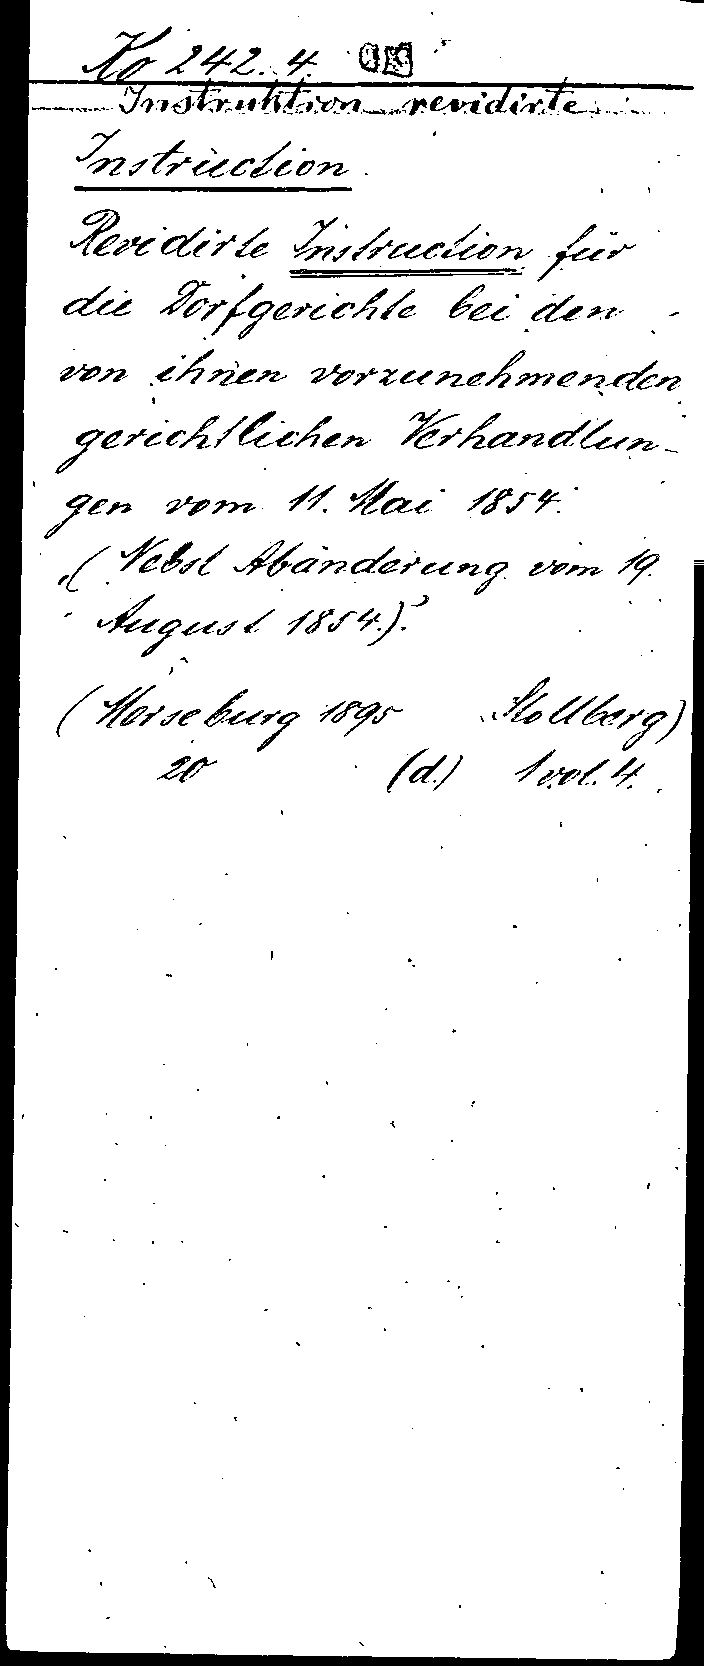 Ko 242. 4.
Instruktion revidirte
Instruction.
Revidirte Instruction für
die Dorfgerichte bei den
von ihnen vorzunehmenden
gerichtlichen Verhandlun-
gen vom 11. Mai 1854.
(Nebst Abänderung vom 19.
August 1854.).
(Merseburg 1895 Stollberg)
20 (d.) 1 vol. 4.